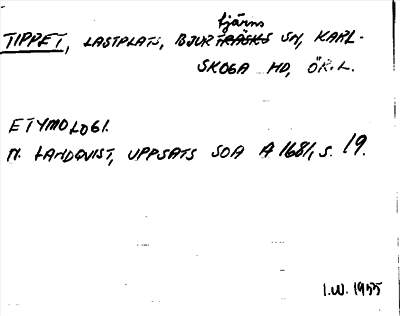 tjärns
TIPPET, LASTPLATS, BJURTRÄSKS SN, KARL-
SKOGA HD, ÖR.L.
ETYMOLOGI.
N. LANDQVIST, UPPSATS SOA A 1681, S. 19.
I.W. 1955